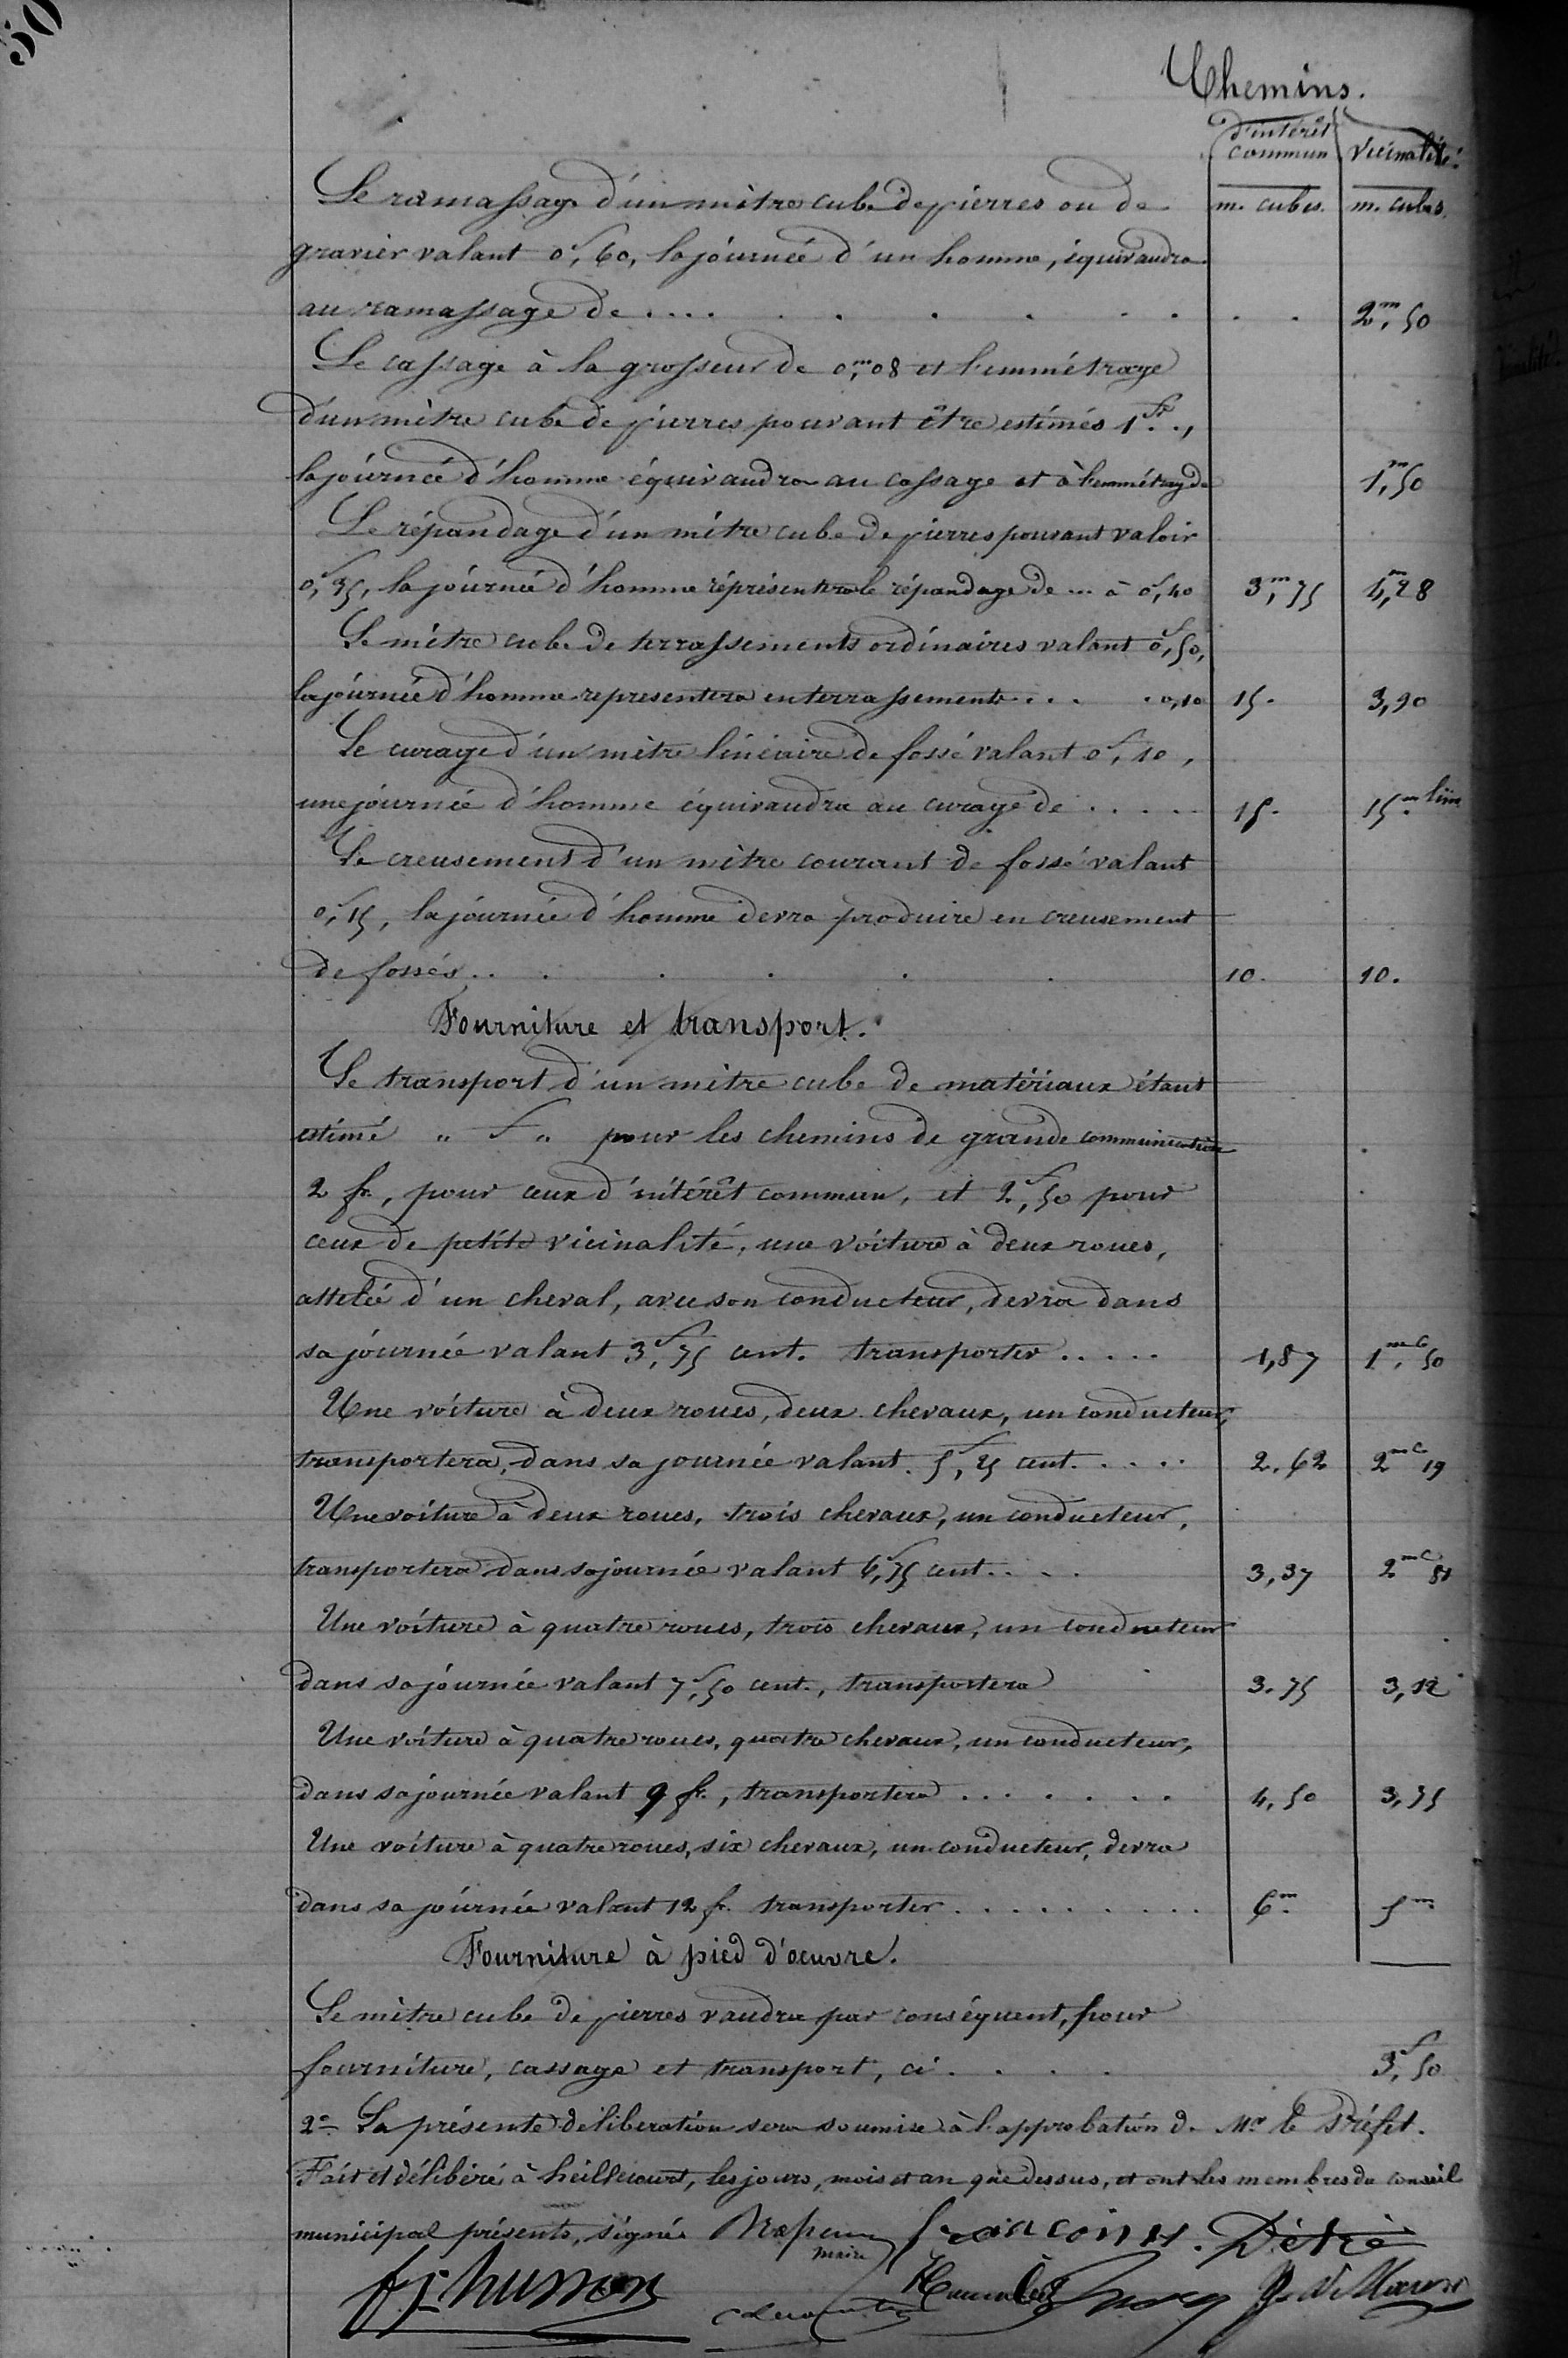 50
Chemins.
d'intérêt commun vicinalité.
Le ramassage d'un mètre cube de pierres ou de m. cubes. m. cubes.
gravier valant 0,f60, la journée d'un homme, équivaudra
au ramassage de .... . . . . . . . 2,m50
Le cassage à la grosseur de 0,m08 et l'emmétrage
d'un mètre cube de pierres pouvant être estimés 1fr.,
la journée d'homme équivaudra au cassage et à l'emmétrage de 1,m50
Le répandage d'un mètre cube de pierres pouvant valoir
0,f35, la journée d'homme réprésentera le répandage de ... à 0,f40 3,m75 4,m28
Le mètre cube de terrassements ordinaires valant 0,f50,
la journée d'homme representera en terrassements . . . . 0,10 15. 3,90
Le curage d'un mètre linéaire de fossé valant 0,f10,
une journée d'homme équivaudra au curage de . . . . . 15. 15.m lin
Le creusement d'un mètre courant de fossé valant
0,f15, la journée d'homme devra produire en creusement
de fossés . . . . . . . 10. 10.
Fourniture et transport.
Le transport d'un mètre cube de matériaux étant
estimé " f " pour les chemins de grande communication
2 fr, pour ceux d'intérêt commun, et 2,f50 pour
ceux de petite vicinalité, une voiture à deux roues,
attelée d'un cheval, avec son conducteur, devra dans
sa journée valant 3,f75 cent. transporter ..... 1,87 1,mc50
Une voiture à deux roues, deux chevaux, un conducteur,
transportera, dans sa journée valant 5,f25 cent. . . . . 2.62 2mc19
Une voiture à deux roues, trois chevaux, un conducteur,
transportera dans sa journée valant 6,f75 cent. . . . 3,37 2mc81
Une voiture à quatre roues, trois chevaux, un conducteur
dans sa journée valant 7,f50 cent., transportera 3.75 3,12
Une voiture à quatre roues, quatre chevaux, un conducteur,
dans sa journée valant 9 fr., transportera . . . . . . . 4,50 3,75
Une voiture à quatre roues, six chevaux, un conducteur, devra
dans sa journée valant 12 fr. transporter . . . . . . . . . 6m. 5m
Fourniture à pied d'œuvre.
Le mètre cube de pierres vaudra par conséquent, pour
fourniture, cassage et transport, ci . . . . 3,f50
2° La présente délibération sera soumise à l'approbation de Mr le Préfet.
Fait et délibéré à heillecourt, les jours, mois et an que dessus, et ont les membres du conseil
municipal présents, signé. françois H. Détré
maire
f j husson